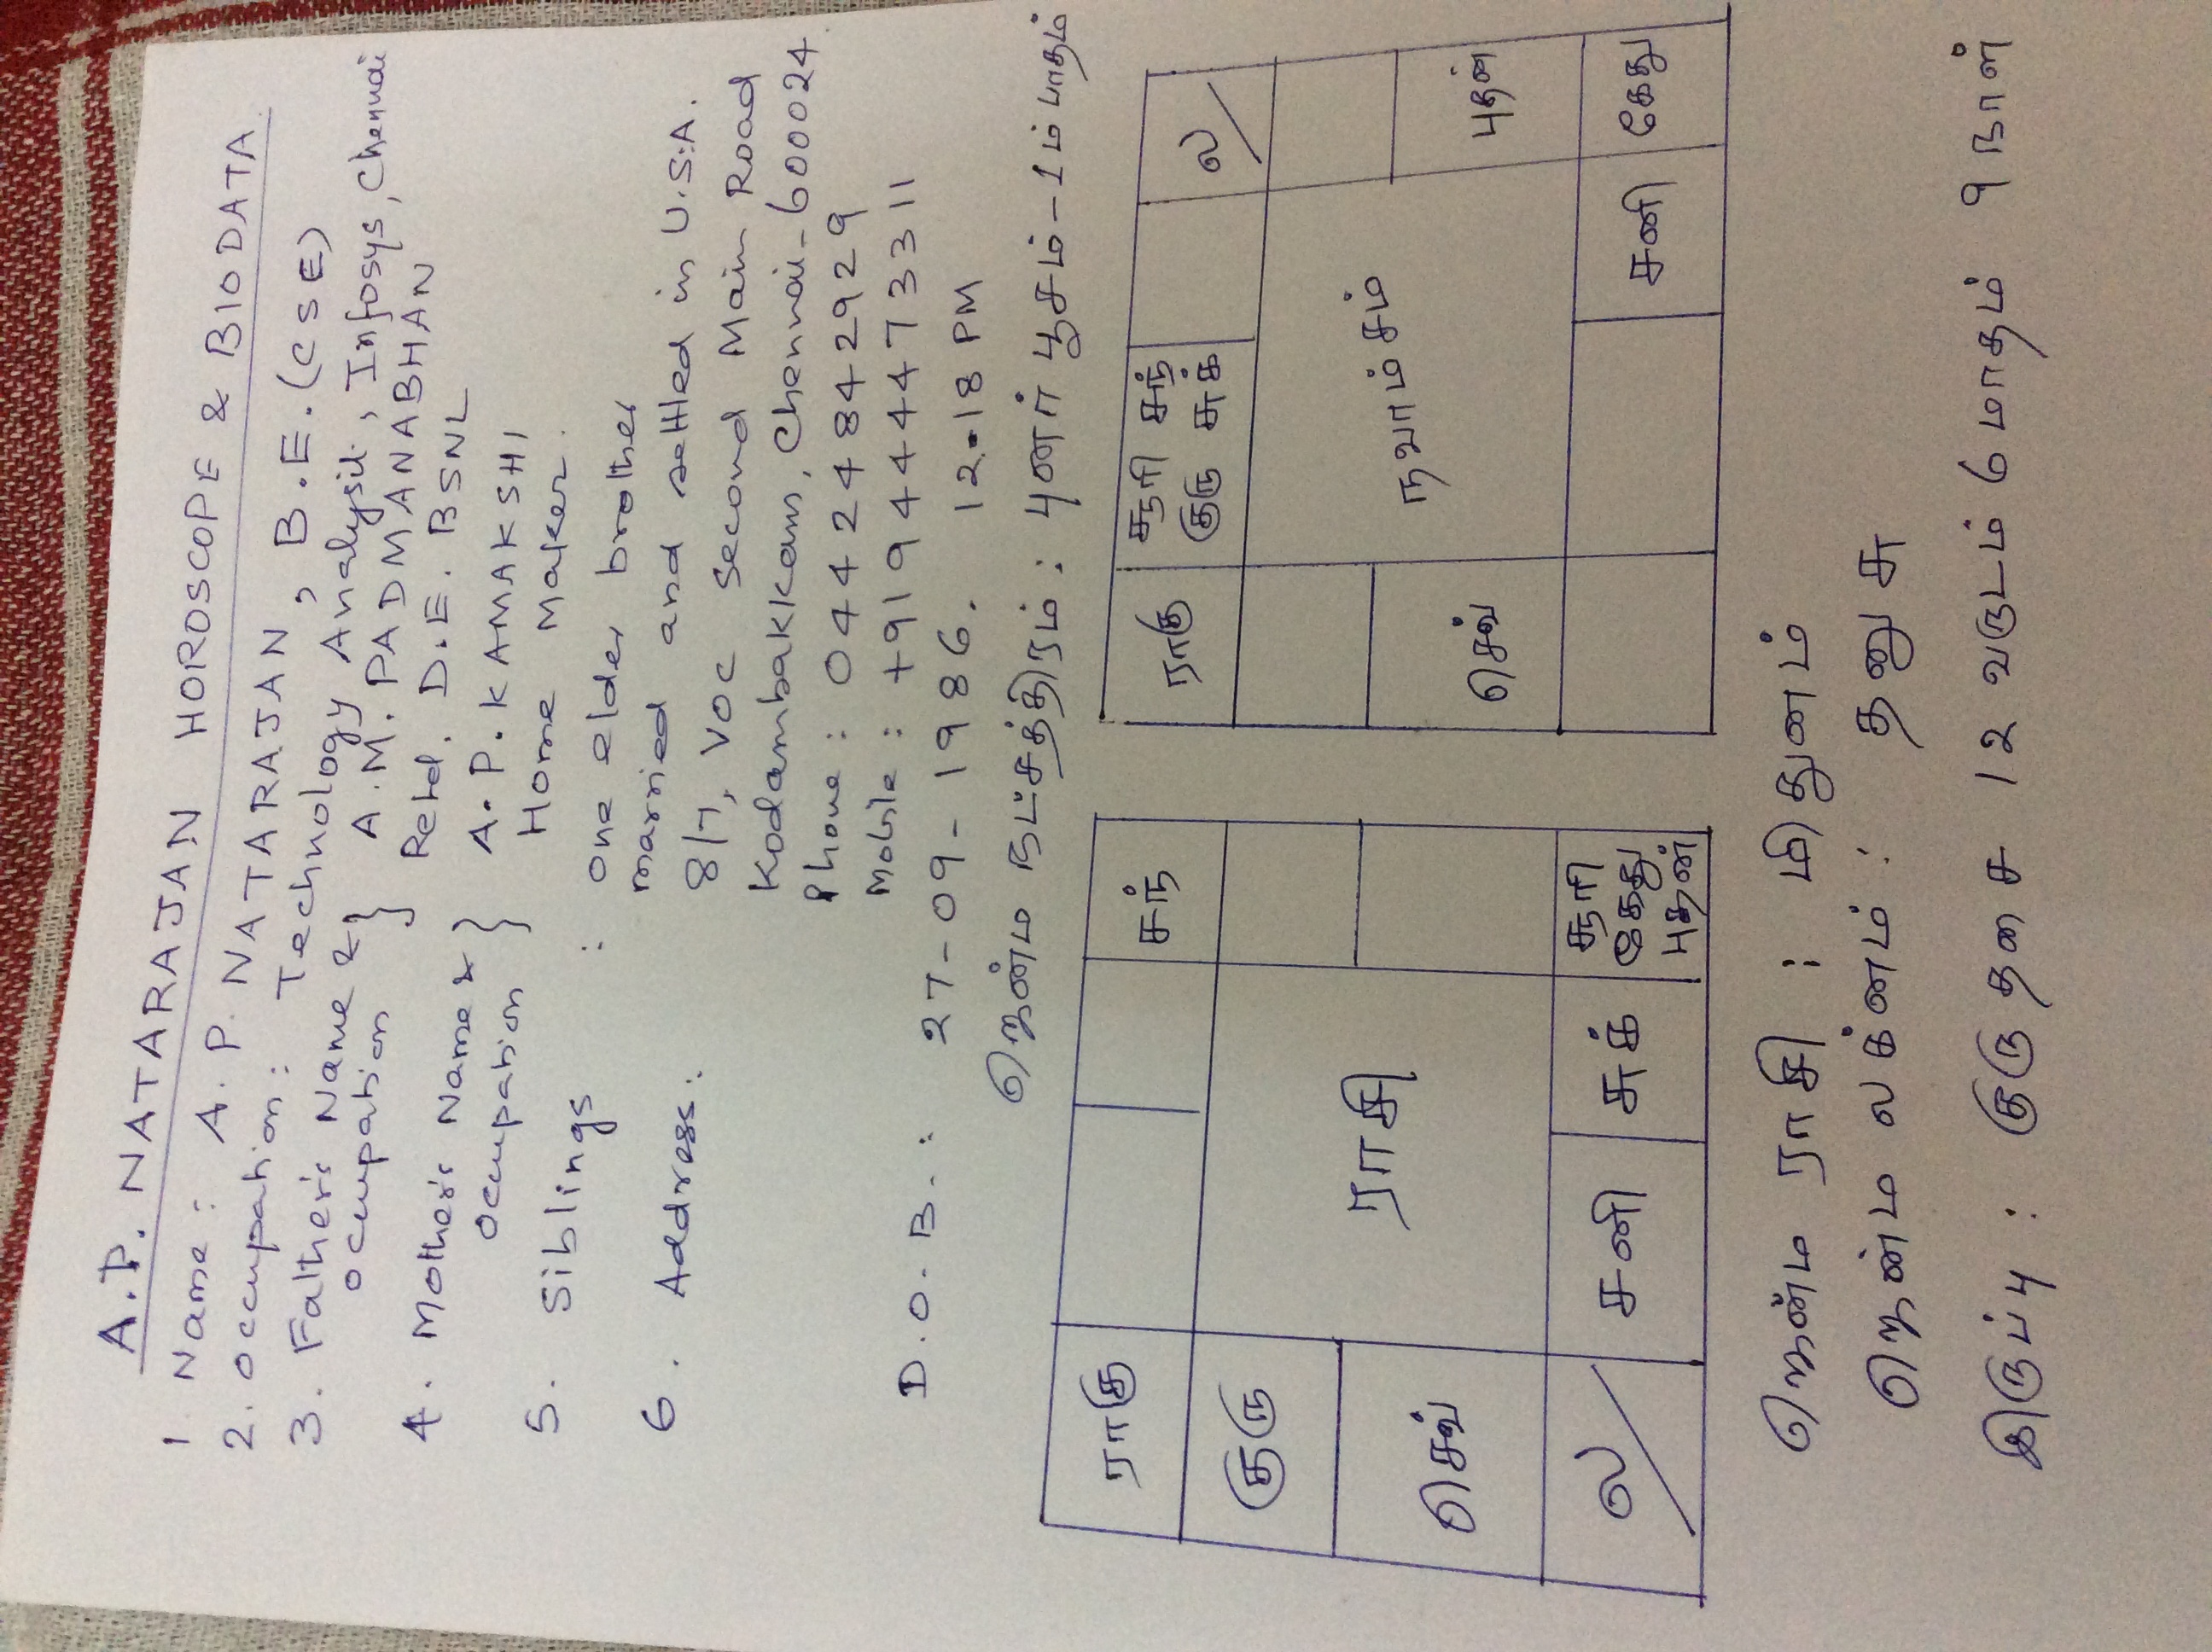 A.P. NATARAJAN HOROSCOPE & BIODATA
1 Name : A.P. NATARAJAN, B.E.(CSE)
2. Occupation: Technology Analysit, Infosys, Chennai
3. Father's Name & } A.M. PADMANABHAN
Occupation Retd. D.E. BSNL
4. Mother's Name & } A.P. KAMAKSHI
Occupation Home Maker.
5. Siblings : One elder brother
married and settled in U.S.A.
6. Address: 8/7, VOC Second Main Road
Kodambakkam, Chennai-600024.
Phone : 04424842929
Mobile : +919444473311
D.O.B.: 27-09-1986. 12.18 PM
ஜென்ம நட்சத்திரம் : புனர் பூசம்-1ம் பாதம்
ராகு சந்
குரு
ராசி
செவ்
ல/ சனி சுக் சூரி கேது புதன்
ராகு சூரி சந் குரு சுக் ல/
நவாம்சம்
செவ் புதன்
சனி கேது
ஜென்ம ராசி : மிதுனம்
ஜென்ம லக்னம் : தனுசு
இருப்பு : குரு தசை 12 வருடம் 6 மாதம் 9 நாள்